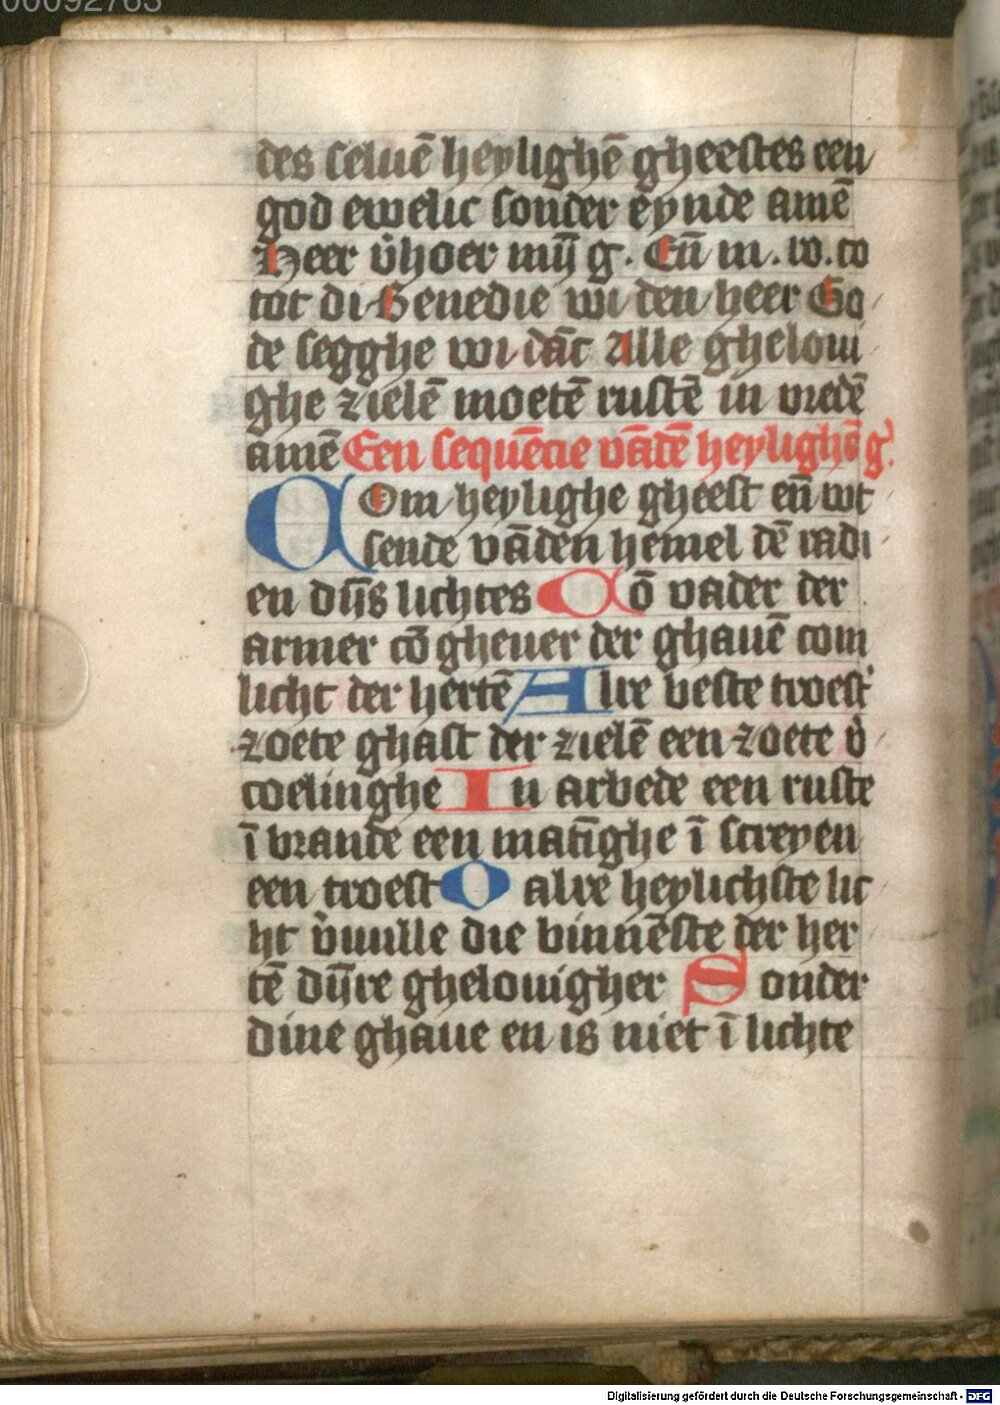 00092763
des seluē heylighē gheestes een
god ewelic sonder eynde amē
Heer v̾hoer mij̄ g. Eū m. w. co
tot di Benedie wi den heer Go
de segghe wi dāc Alle gheloui
ghe zielē moetē rustē in vredē
amē Een sequēcie vādē heylighē g̾
Com heylighe gheest eū wt
sende vāden hemel dē radi
en dijs̄ lichtes Cō vader der
armer cō gheuer der ghauē com
licht der hertē Alre beste troest̾
zoete ghast der zielē een zoete v̾
coelinghe In arbede een ruste
ī brande een matīghe ī screyen
een troest O alre heylichste lic
ht v̾uulle die binnēste der her
tē dijn̄re ghelouigher Sonder
dine ghaue en is niet ī lichte
Digitalisierung gefördert durch die Deutsche Forschungsgemeinschaft - DFG